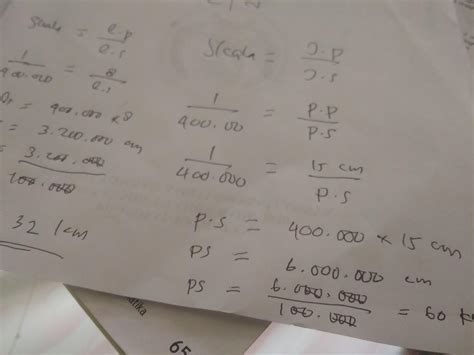 Skala = l.p / l.s
1 / 400.000 = 8 / l.s
= 400.000 x 8
= 3.200.000 cm
= 3.200.000 / 100.000
32 km
Skala = J.P / J.S
1 / 400.00 = P.P / P.S
1 / 400.000 = 15 cm / P.S
P.S = 400.000 x 15 cm
PS = 6.000.000 cm
PS = 6.000.000 / 100.000 = 60 k
tika
65